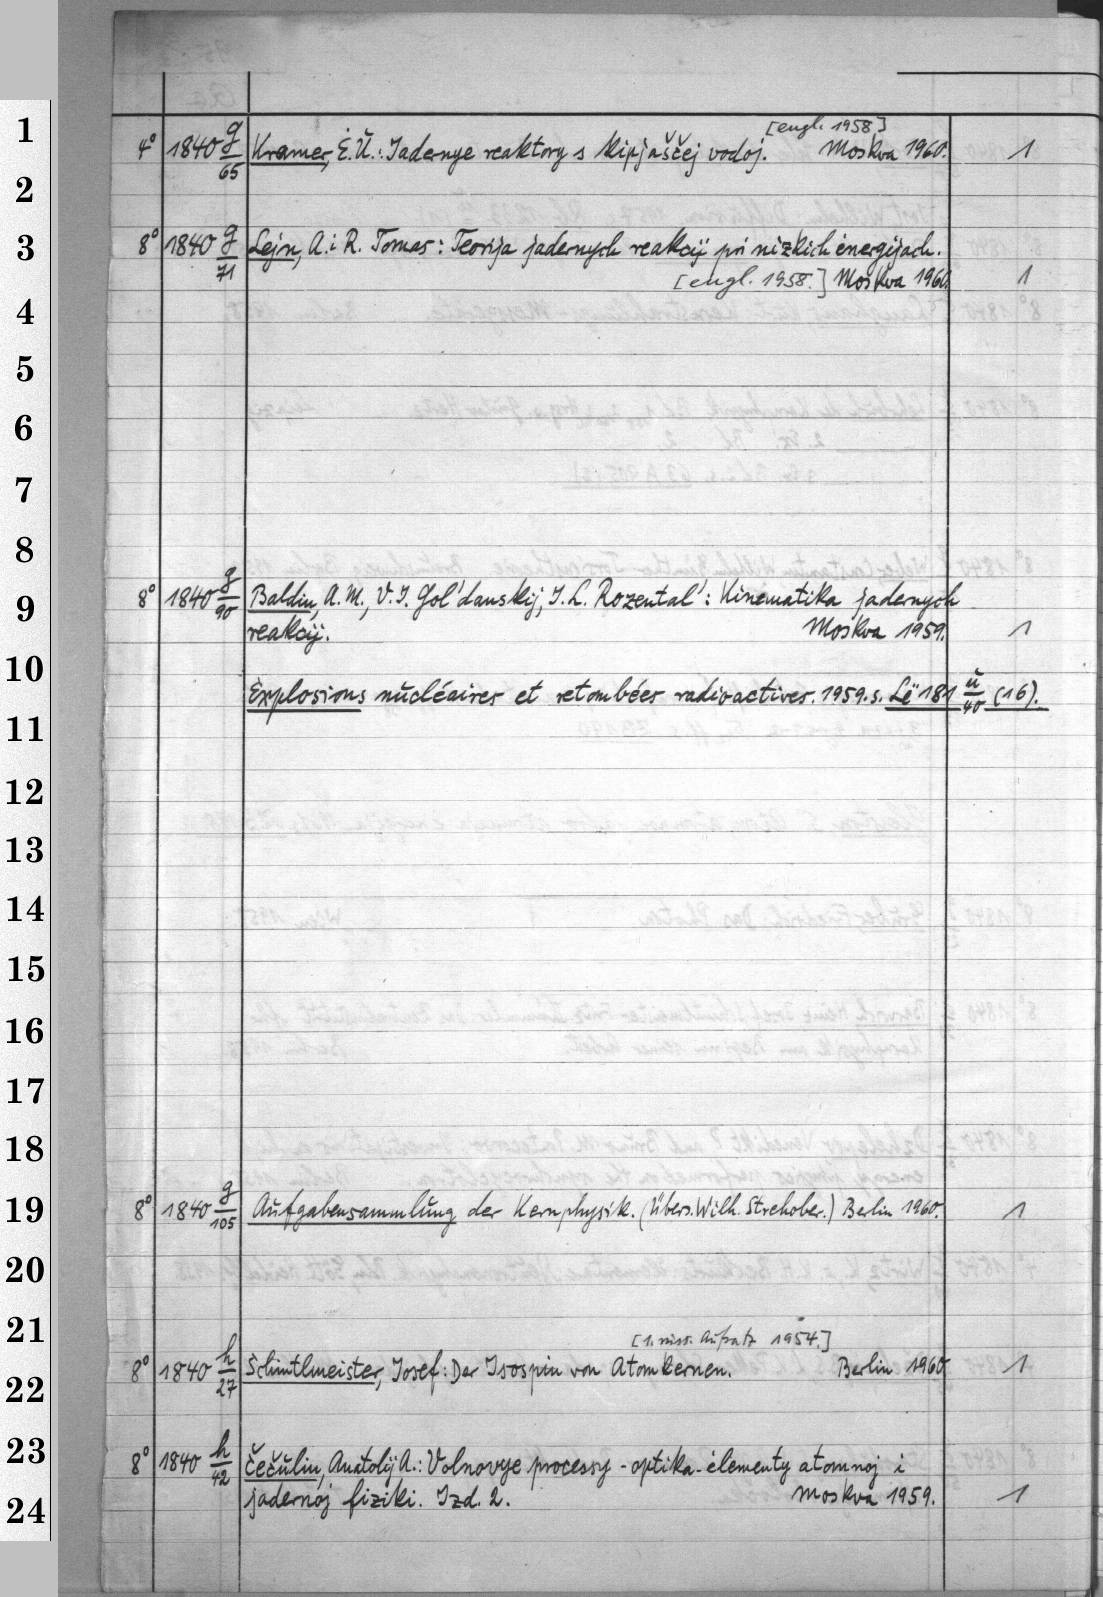 1
[engl. 1958]
4° 1840 g/65 Kramer, Ė.Ŭ.: Jadernye reaktory s kipjaščej vodoj. Moskva 1960. 1
2
3
8° 1840 g/71 Lejn, A. i R. Tomas: Teorija jadernych reakcij pri nizkich ėnergijach.
[engl. 1958.] Moskva 1960. 1
4
5
6
7
8
9
8° 1840 g/90 Baldin, A.M., V.I. Gol'danskij, I.L. Rozental': Kinematika jadernych
reakcij. Moskva 1959. 1
10
Explosions nucléaires et retombées radioactives. 1959. s. Lë 181 u/40 (16).
11
12
13
14
15
16
17
18
19
8° 1840 g/105 Aufgabensammlung der Kernphysik. (Übers. Wilh. Strehober.) Berlin 1960. 1
20
21
[1. russ. Aufsatz 1954.]
8° 1840 h/27 Schintlmeister, Josef: Der Isospin von Atomkernen. Berlin 1960 1
22
23
8° 1840 h/42 Čečulin, Anatolij A.: Volnovye processy - optika - ėlementy atomnoj i
jadernoj fiziki. Izd. 2. Moskva 1959. 1
24